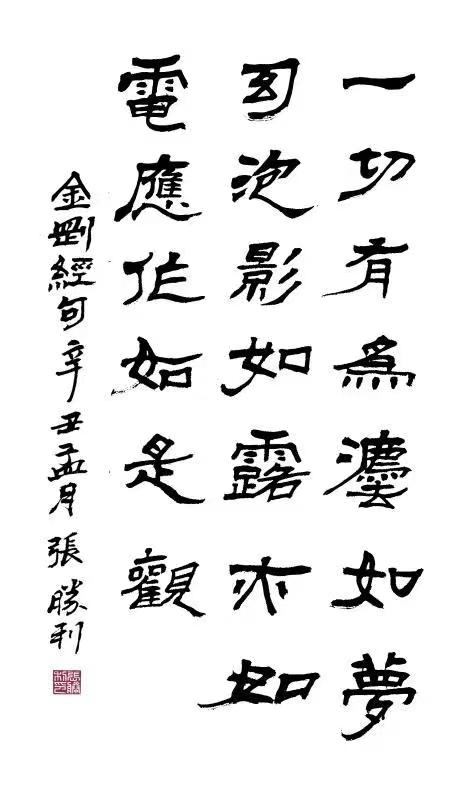 一切有為灋如夢
幻泡影如露亦如
電應作如是觀
金剛經句辛丑孟月張勝利
張勝利印